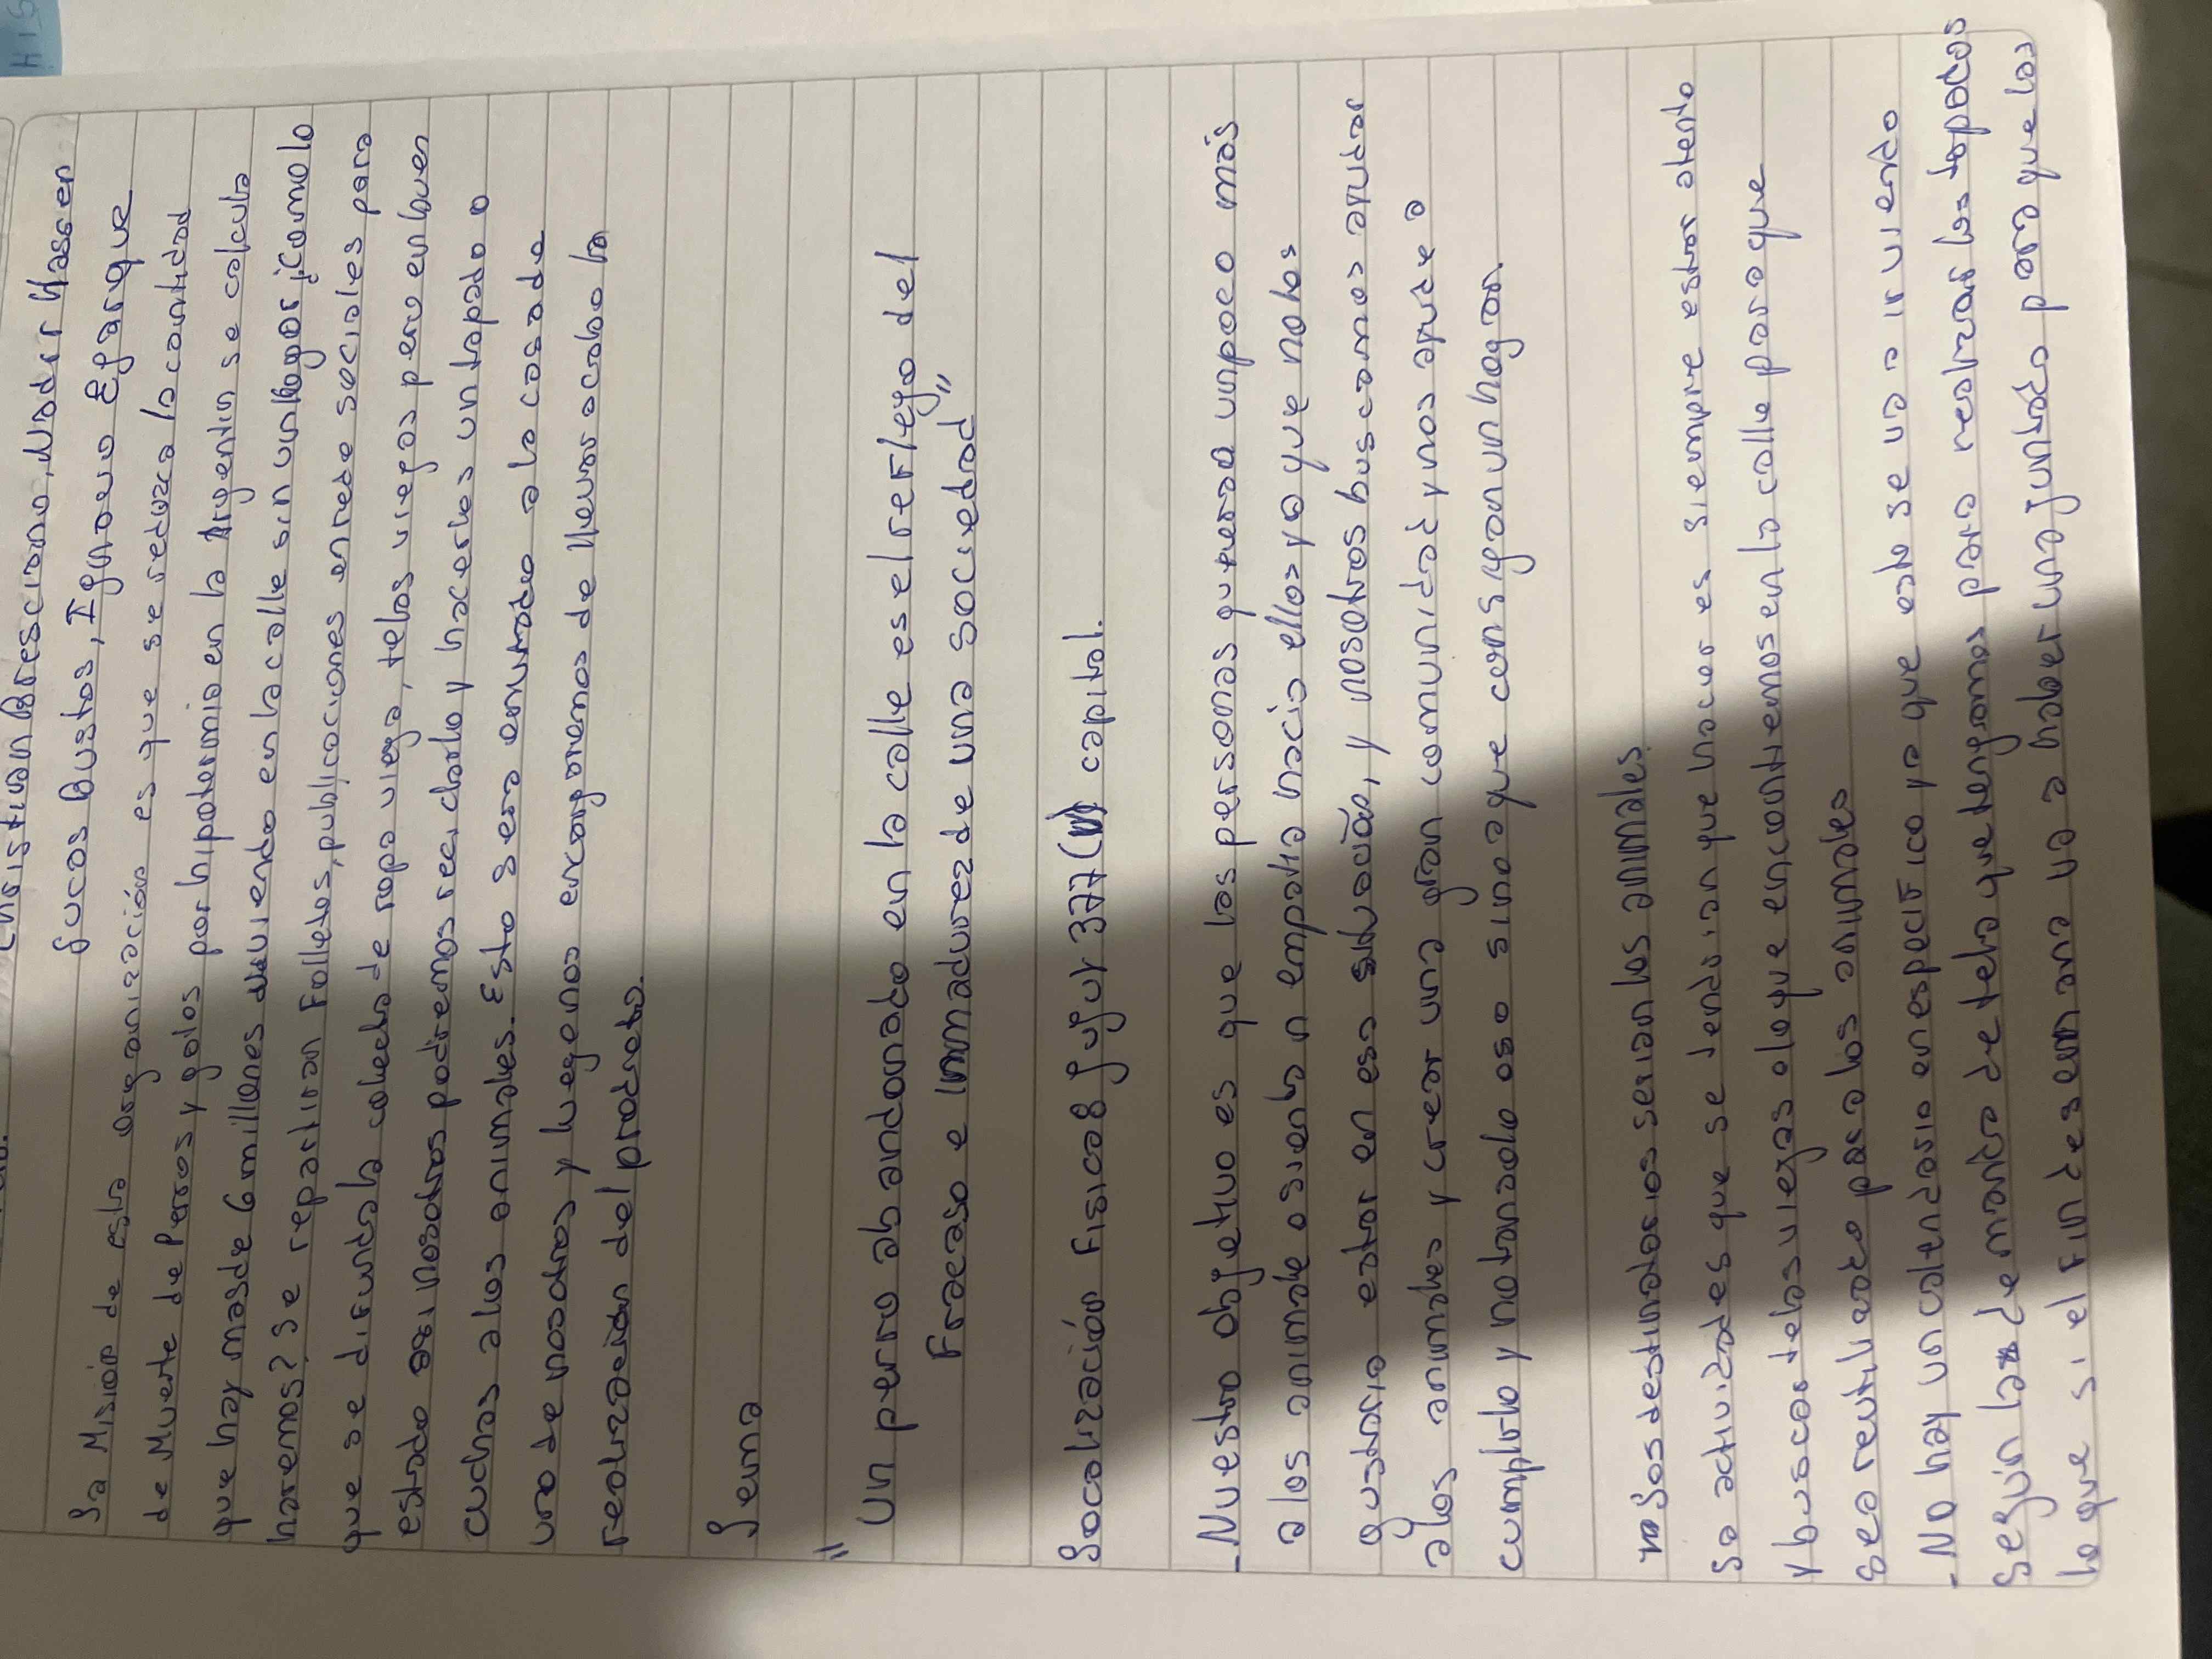 Christian Bresciano, Nadir Yassen
Lucas Bustos, Ignacio Eyzarque
La Misión de esta organización es que se reduzca la cantidad
de Muerte de Perros y gatos por hipotermia en la Argentina se calcula
que hay mas de 6 millones viviendo en la calle sin un hogar ¿Como lo
haremos? Se repartiran Folletos, publicaciones en rede sociales para
que se difunda la colecta de ropa vieja, telas viejas pero en buen
estado asi nosotros podremos reciclarlo y hacerles un tapado o
cuchas a los animales. Esto sera enviado a la casa de
uno de nosotros y luego nos encargaremos de llevar a cabo la
realizacion del producto.
Lema
"Un perro abandonado en la calle es el reflejo del
Fracaso e Inmadurez de una sociedad"
Localización Fisica & Jujuy 377 capital.
-Nuestro objetivo es que las personas quieran un poco más
a los animale o sienta n empatia hacia ellos ya que no les
gustaria estar en esa situación, y nosotros buscamos ayudar
a los animales y crear una gran comunidad y nos ayude a
cumplirlo y no tan solo eso sino a que consigan un hogar.
Los destinatarios serian los animales.
La actividades que se tendrian que hacer es siempre estar atento
y buscar telas viejas o lo que encontremos en la calle para que
sea reutilizado para los animales
-No hay un calendario en especifico ya que esto se va a ir viendo
según la demanda de tela que tengamos para realizar los tapados
lo que si el fin de semana se va a hacer un conjunto para que las